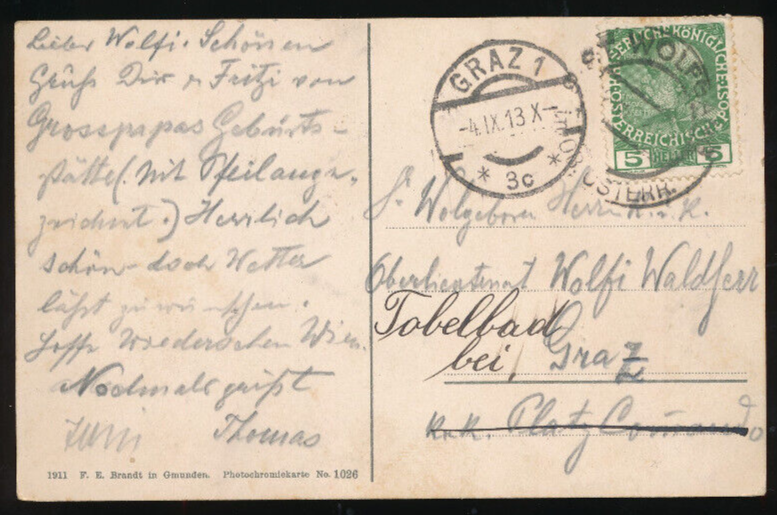 Lieber Wolfi. Schönen
Gruß Dir u Fritzi von
Grosspapas Geburts-
stätte (mit Pfeil ange-
zeichnet.) Herrlich
schön doch Wetter
läßt zu wünschen.
Hoffe Wiedersehen Wien.
Nochmals grüßt
Thomas
1911 F. E. Brandt in Gmunden. Photochromiekarte No. 1026
GRAZ 1
-4.IX.13 X-
* 3c *
ST. WOLFG
OB. ÖSTERR.
KAISERLICHE KÖNIGLICHE
ÖSTERREICHISCHE POST
5 HELLER 5
Sr Wolgeboren Herrn k. u. k.
Oberlieutenant Wolfi Waldherr
Tobelbad
bei Graz
k.u.k. Platz Comando